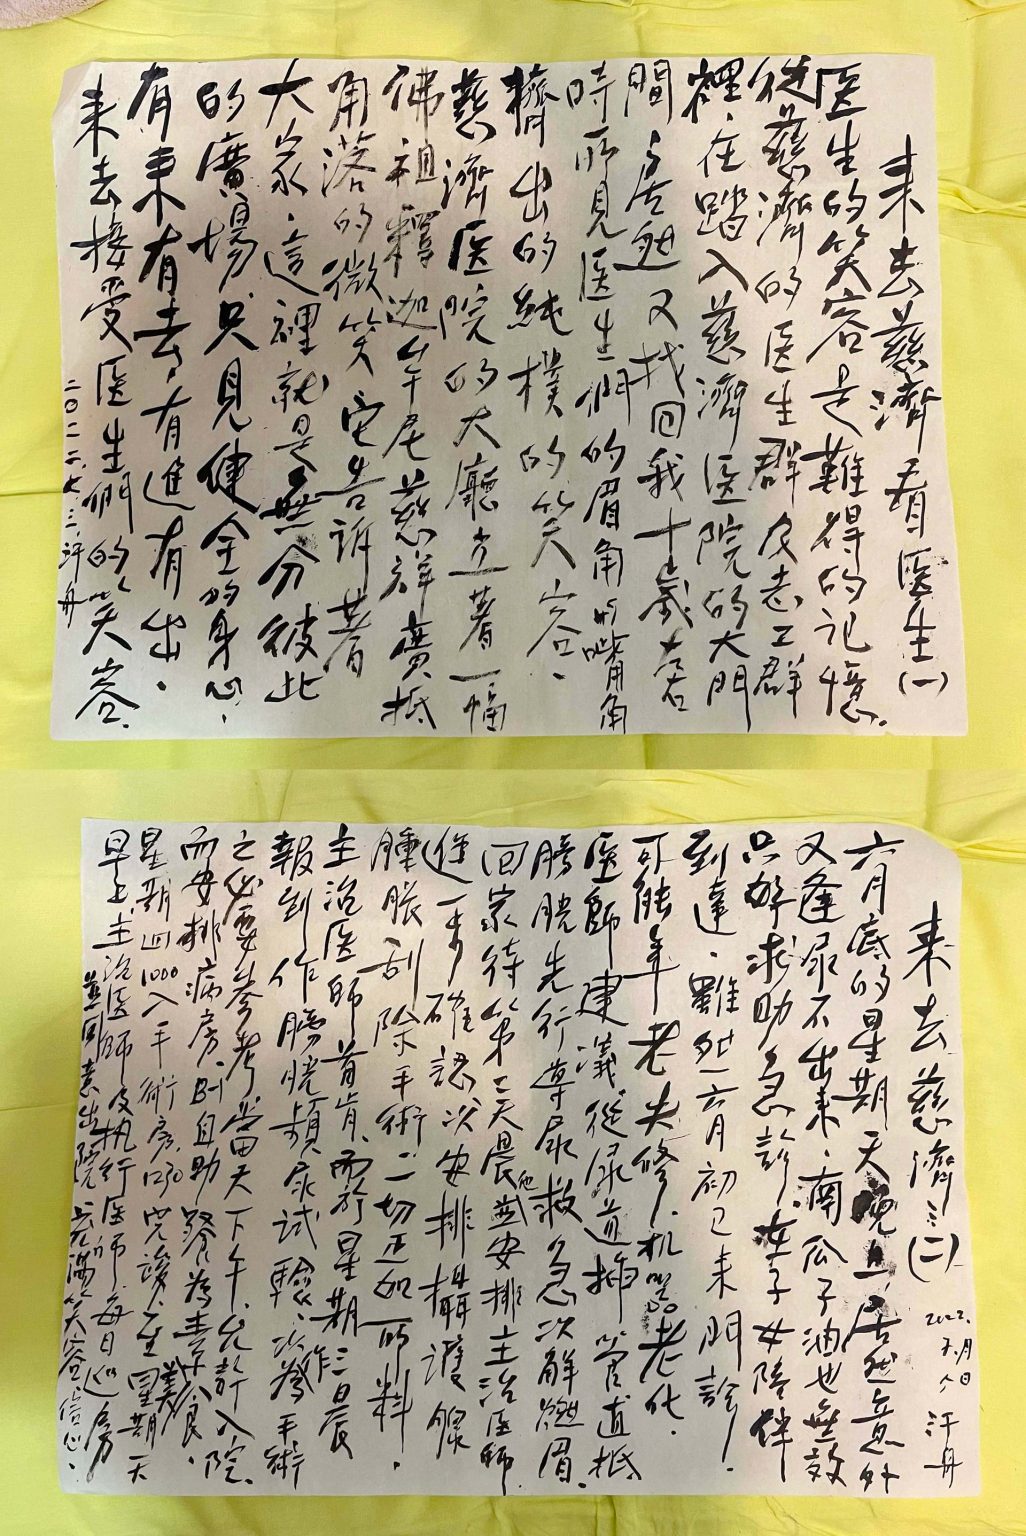 来去慈濟看医生(一)
医生的笑容是難得的记憶.
從慈濟的医生群及志工群
裡.在踏入慈濟医院的大門
間.居然又找回我十歲左右
時所見医生們的眉角的嘴角
擠出的純樸的笑容.
慈濟医院的大廳立著一幅
佛祖釋迦牟尼慈祥廣抵
角落的微笑它告訴著
大家.這裡就是無分彼此
的廣場.只見健全的身心.
有来有去.有進有出.
来去接受医生們的笑容.
二〇二二.七.三.汗舟
来去慈濟(二)
2022.7.月
日
汗舟
六月底的星期天晚上居然意外
又逢尿不出来.南瓜子油也無效
只好求助急診.在子女陪伴
到達.雖然六月初已来門診.
可能年老失修.机器老化.
医師建議從尿道插管直抵
膀胱先行導尿救急.次解燃眉.
回家待第二天晨他並安排主治医師
進一步確認.次安排攝護腺
腫脹刮除手術.一切正如所料.
主治医師首肯.而於星期三日晨
報到作膀胱頻尿試驗.次為手術
之必要參考.當天下午允許入院.
而安排病房.BH自助餐為素食.
星期四1000入手術房.1230完竣.至星期天
早上.主治医師及执行医師每日巡房
並同意出院.充滿笑容信心.